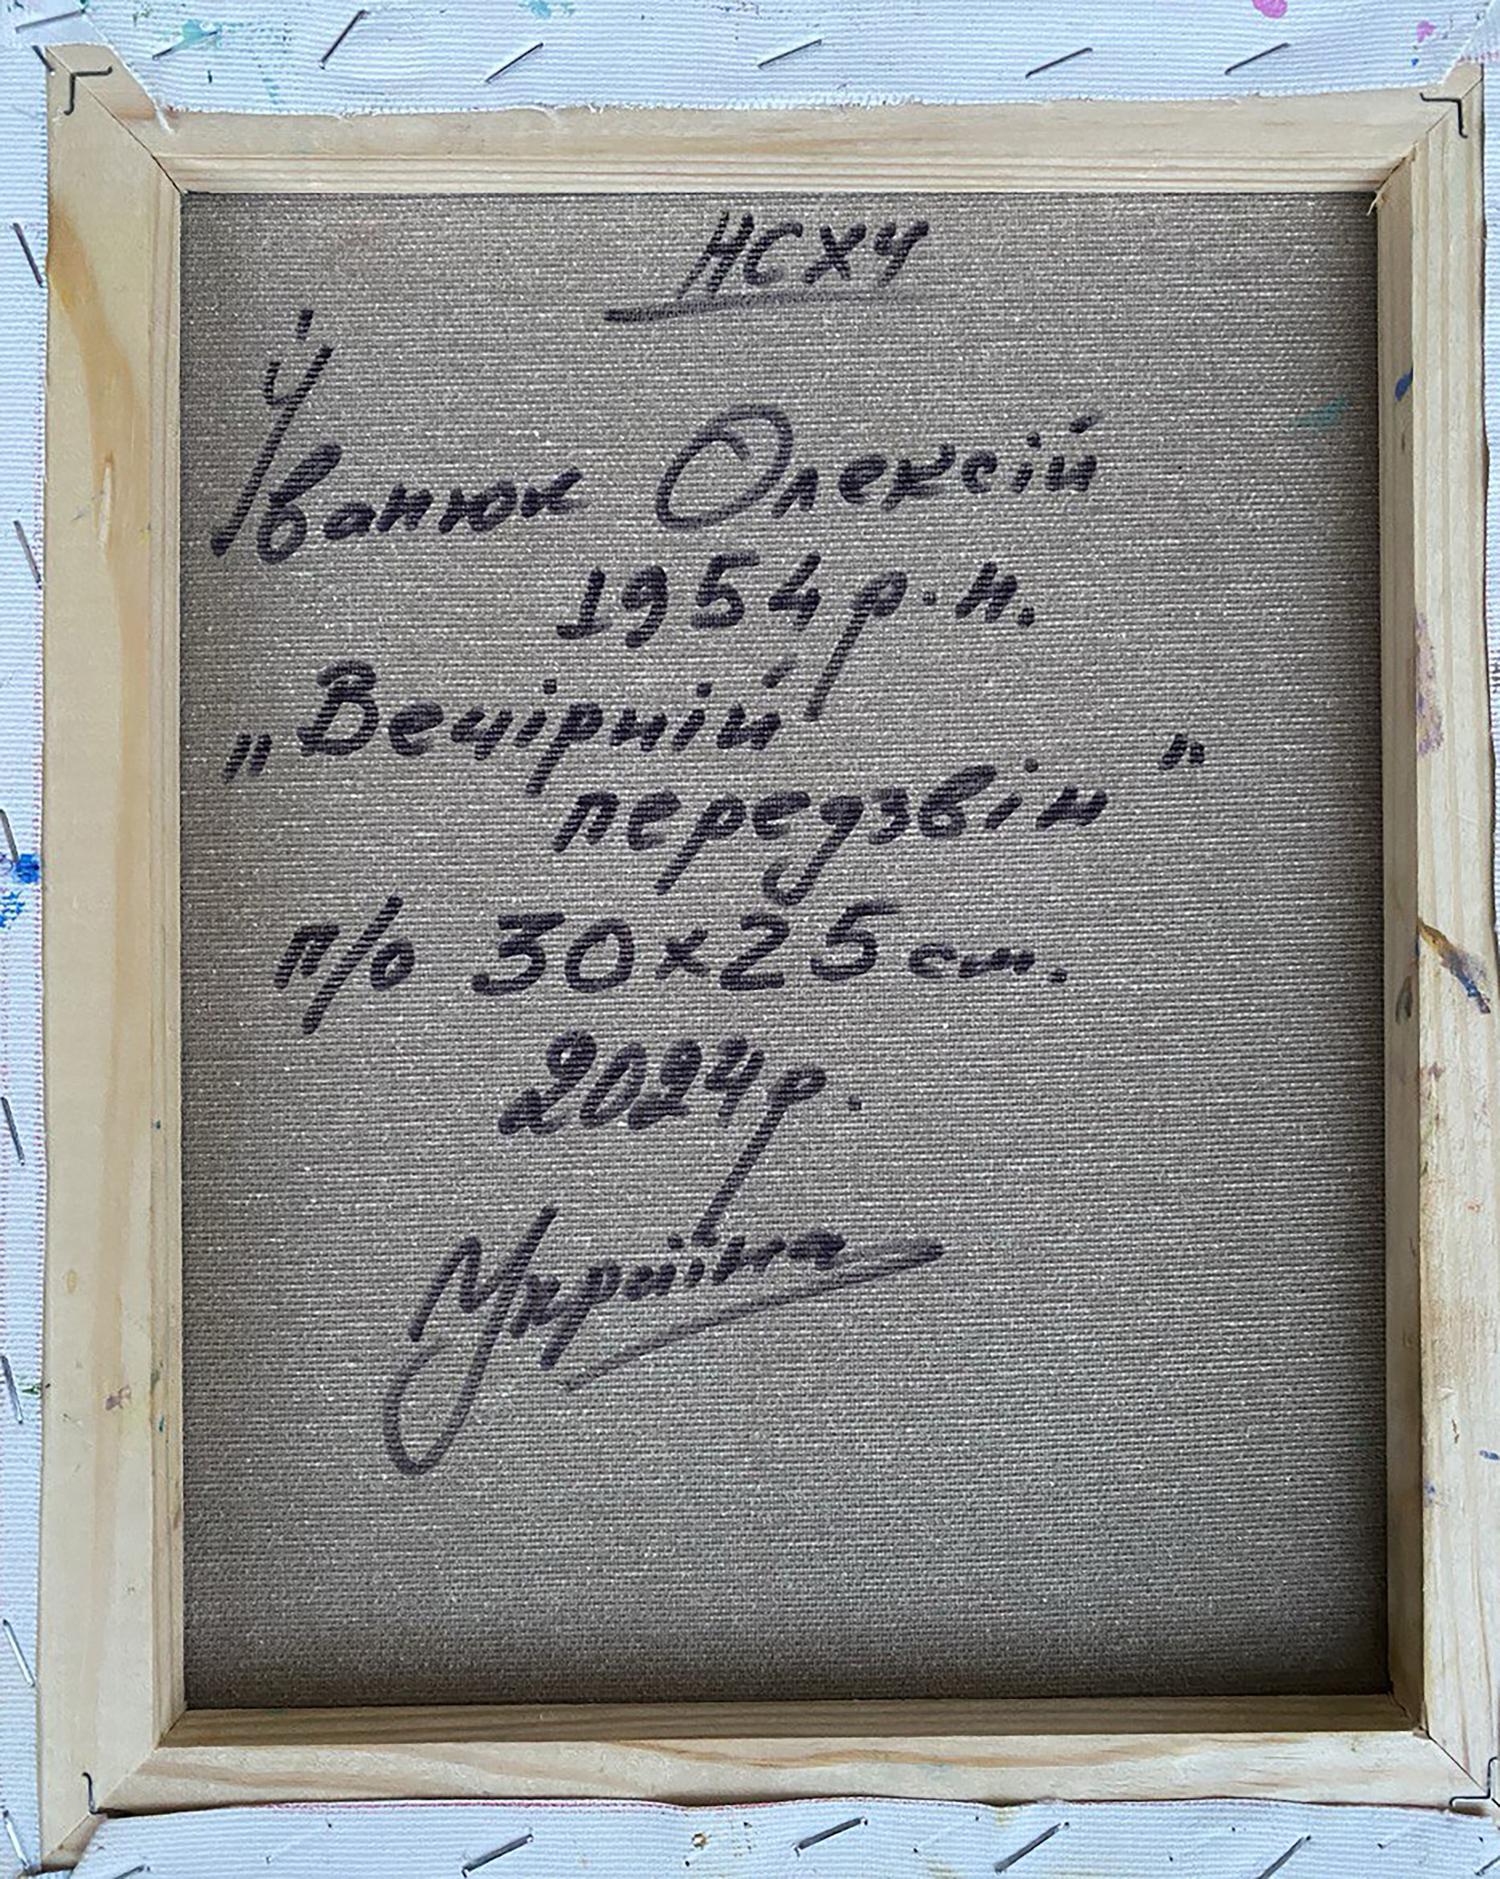 НСХУ
Іванюк Олексій
1954 р. н.
„Вечірній
передзвін"
п/о 30х25 см.
2024 р.
Україна